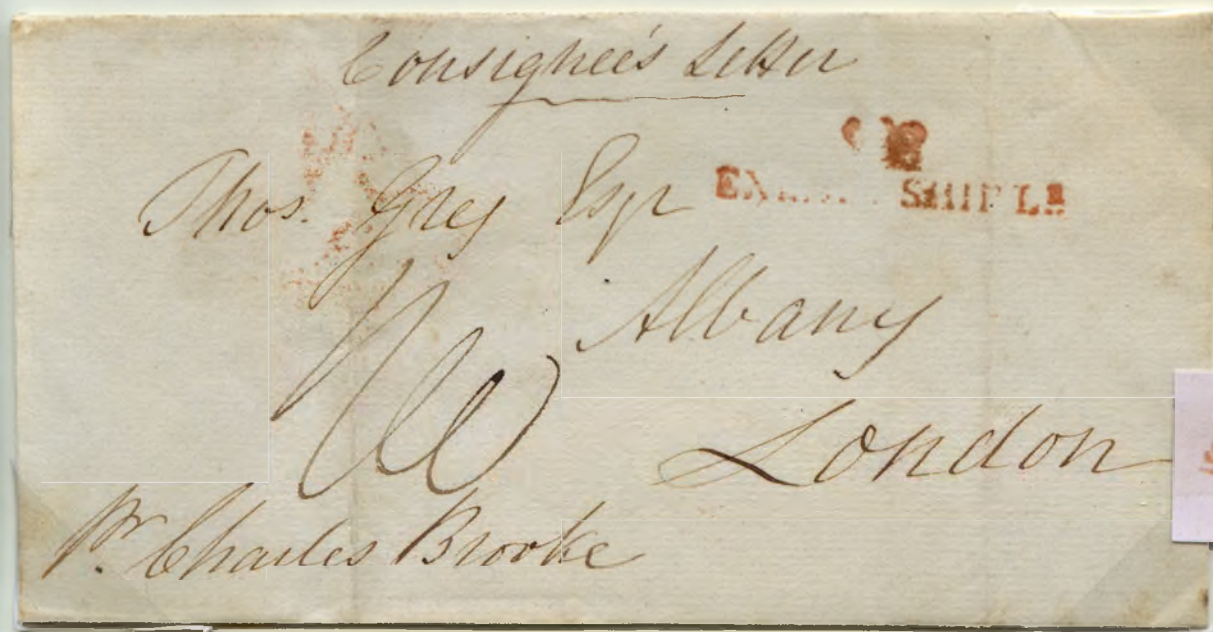 Consignee's Letter
Thos. Grey Esqr
SHIP LR
Albany
London
Pr. Charles Brooke